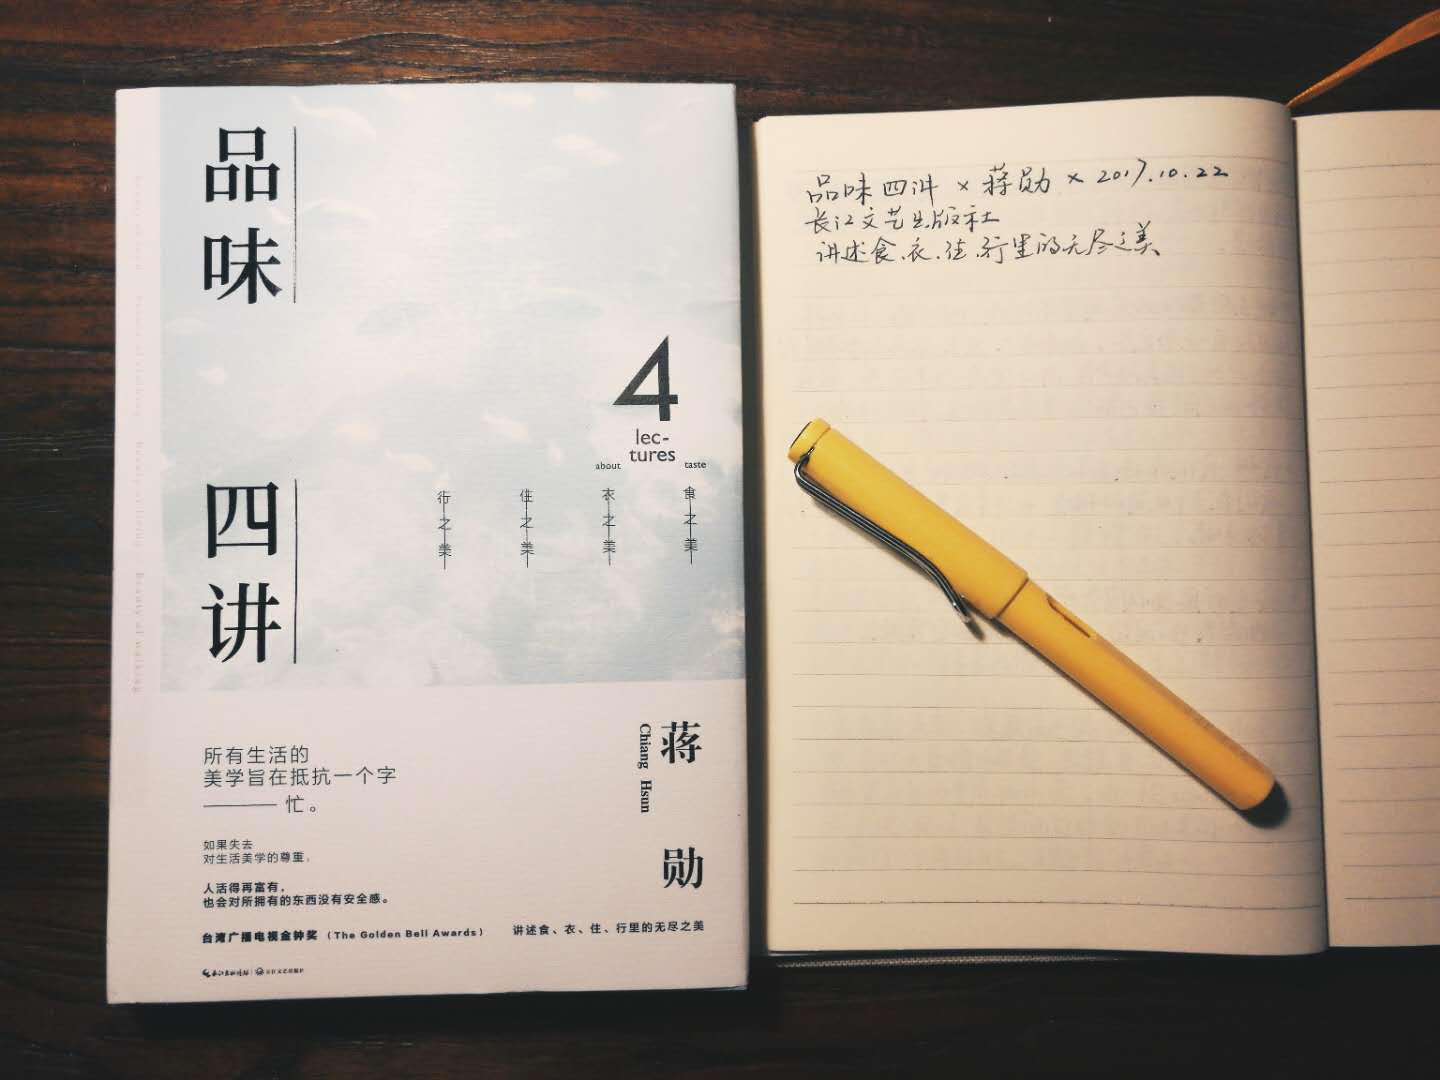 品味
四讲
4
lec-
tures
about taste
食之美
衣之美
住之美
行之美
蒋勋
Chiang Hsun
所有生活的
美学旨在抵抗一个字
——忙。
如果失去
对生活美学的尊重，
人活得再富有，
也会对所拥有的东西没有安全感。
台湾广播电视金钟奖（The Golden Bell Awards）
讲述食、衣、住、行里的无尽之美
长江文艺出版社
品味四讲 × 蒋勋 × 2017.10.22
长江文艺出版社
讲述食、衣、住、行里的无尽之美